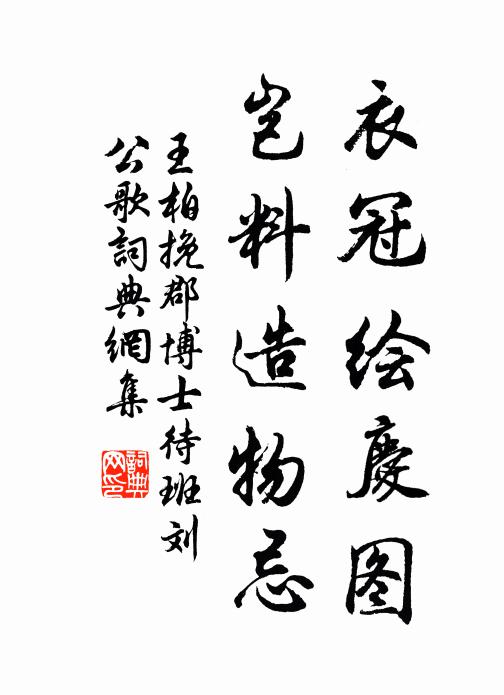 衣冠绘慶图
岂料造物忌
王柏挽郡博士待班刘
公歌詞典網集
詞典网印